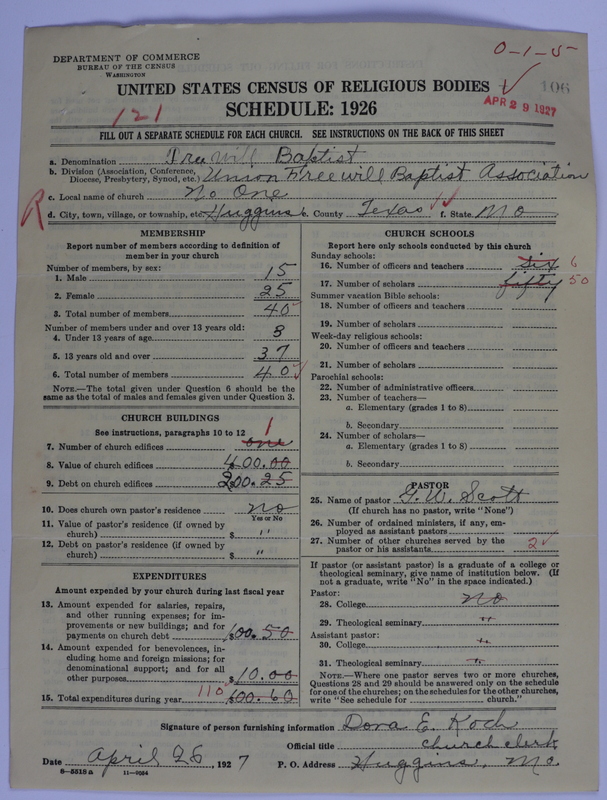 0-1-5
DEPARTMENT OF COMMERCE
BUREAU OF THE CENSUS
WASHINGTON
UNITED STATES CENSUS OF RELIGIOUS BODIES
106
APR 29 1927
121
SCHEDULE: 1926
FILL OUT A SEPARATE SCHEDULE FOR EACH CHURCH. SEE INSTRUCTIONS ON THE BACK OF THIS SHEET
a. Denomination Free Will Baptist
b. Division (Association, Conference, Diocese, Presbytery, Synod, etc.) Union Freewill Baptist Association
R
c. Local name of church No One
d. City, town, village, or township, etc. Huggins e. County Texas f. State Mo
MEMBERSHIP
Report number of members according to definition of
member in your church
Number of members, by sex:
1. Male 15
2. Female 25
3. Total number of members 40
Number of members under and over 13 years old:
4. Under 13 years of age 3
5. 13 years old and over 37
6. Total number of members 40
NOTE.—The total given under Question 6 should be the
same as the total of males and females given under Question 3.
CHURCH BUILDINGS
See instructions, paragraphs 10 to 12
7. Number of church edifices one 1
8. Value of church edifices $400.00
9. Debt on church edifices $200.25
10. Does church own pastor's residence no
Yes or No
11. Value of pastor's residence (if owned by
church) $ "
12. Debt on pastor's residence (if owned by
church) $ "
EXPENDITURES
Amount expended by your church during last fiscal year
13. Amount expended for salaries, repairs,
and other running expenses; for im-
provements or new buildings; and for
payments on church debt $100.50
14. Amount expended for benevolences, in-
cluding home and foreign missions; for
denominational support; and for all
other purposes $10.00
15. Total expenditures during year 110 $600.60
CHURCH SCHOOLS
Report here only schools conducted by this church
Sunday schools:
16. Number of officers and teachers six 6
17. Number of scholars fifty 50
Summer vacation Bible schools:
18. Number of officers and teachers
19. Number of scholars
Week-day religious schools:
20. Number of officers and teachers
21. Number of scholars
Parochial schools:
22. Number of administrative officers
23. Number of teachers—
a. Elementary (grades 1 to 8)
b. Secondary
24. Number of scholars—
a. Elementary (grades 1 to 8)
b. Secondary
PASTOR
25. Name of pastor G. W. Scott
(If church has no pastor, write "None")
26. Number of ordained ministers, if any, em-
ployed as assistant pastors
27. Number of other churches served by the
pastor or his assistants 2
If pastor (or assistant pastor) is a graduate of a college or
theological seminary, give name of institution below. (If
not a graduate, write "No" in the space indicated.)
Pastor:
28. College no
29. Theological seminary "
Assistant pastor:
30. College "
31. Theological seminary "
NOTE.—Where one pastor serves two or more churches,
Questions 28 and 29 should be answered only on the schedule
for one of the churches; on the schedules for the other churches,
write "See schedule for church."
Signature of person furnishing information Dora E. Koch
Official title church clerk
Date April 26, 1927 P. O. Address Huggins, Mo.
8-5518 a 11-9034